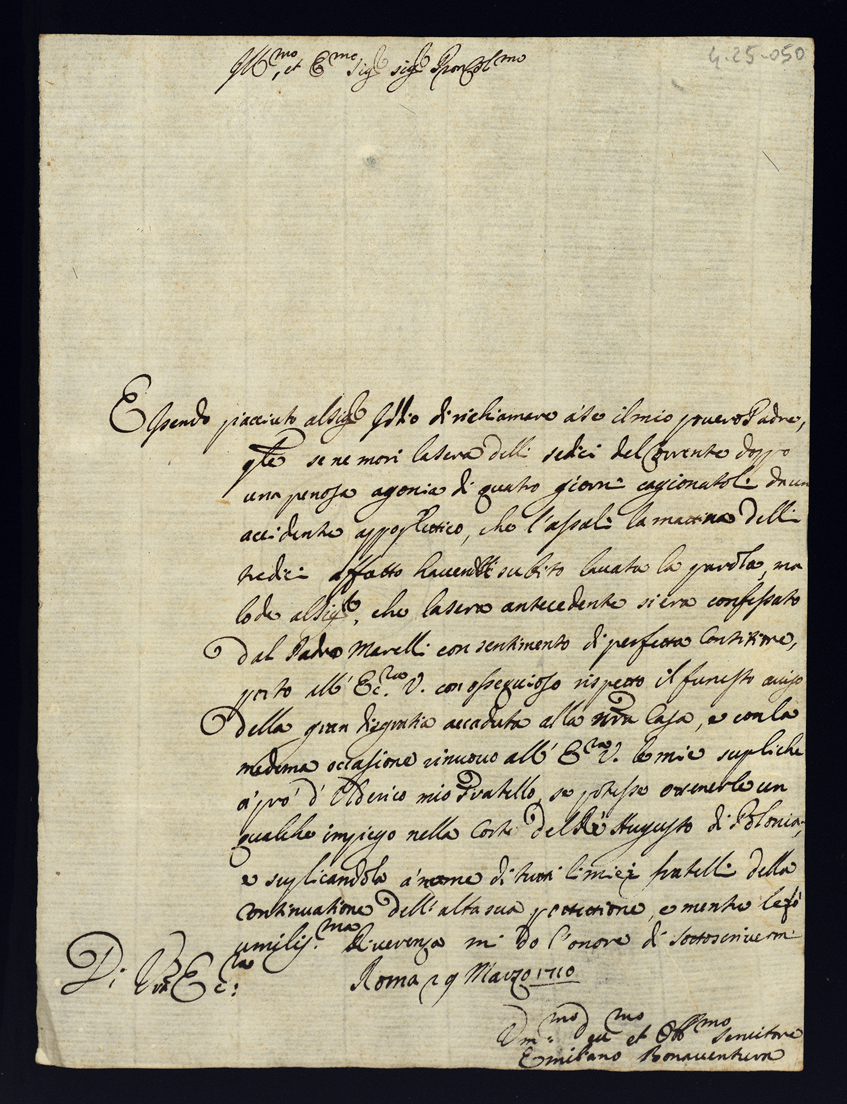 4.25.050
Ill.mo, et Ecc.mo Sig.r Sig.r Pron Col.mo
Essendo piacciuto al Sig.re Iddio di richiamare à se il mio povero Padre,
q.le se ne morì la sera delli sedici del Corrente doppo
una penosa agonia di quatro giorni cagionatoli da un
accidente appopletico, che l'assalì la mattina delli
tredici affatto havendoli subito levata la parola, ma
lode al Sig.re, che la sera antecedente si era confessato
dal Padre Marelli con sentimento di perfetta Contritione,
porto all' Ecc.za V. con ossequioso rispetto il funesto aviso
della gran disgratia accaduta alla nr̃a Casa, e con la
medema occasione rinuovo all' Ecc.za V. le mie supliche
à prò d'Olderico mio Fratello, se potesse ottenerle un
qualche impiego nella Corte del Rè Augusto di Polonia,
e suplicandola à nome di tutti li miei fratelli della
continuatione dell' alta sua protettione, e mentre le fò
umilis.ma Riverenza mi do l'onore di sottoscrivermi
Di Vr̃a Ecc.za Roma 19 Marzo 1710
Um.mo Dev.mo et Obb.mo Servitore
Emiliano Bonaventura